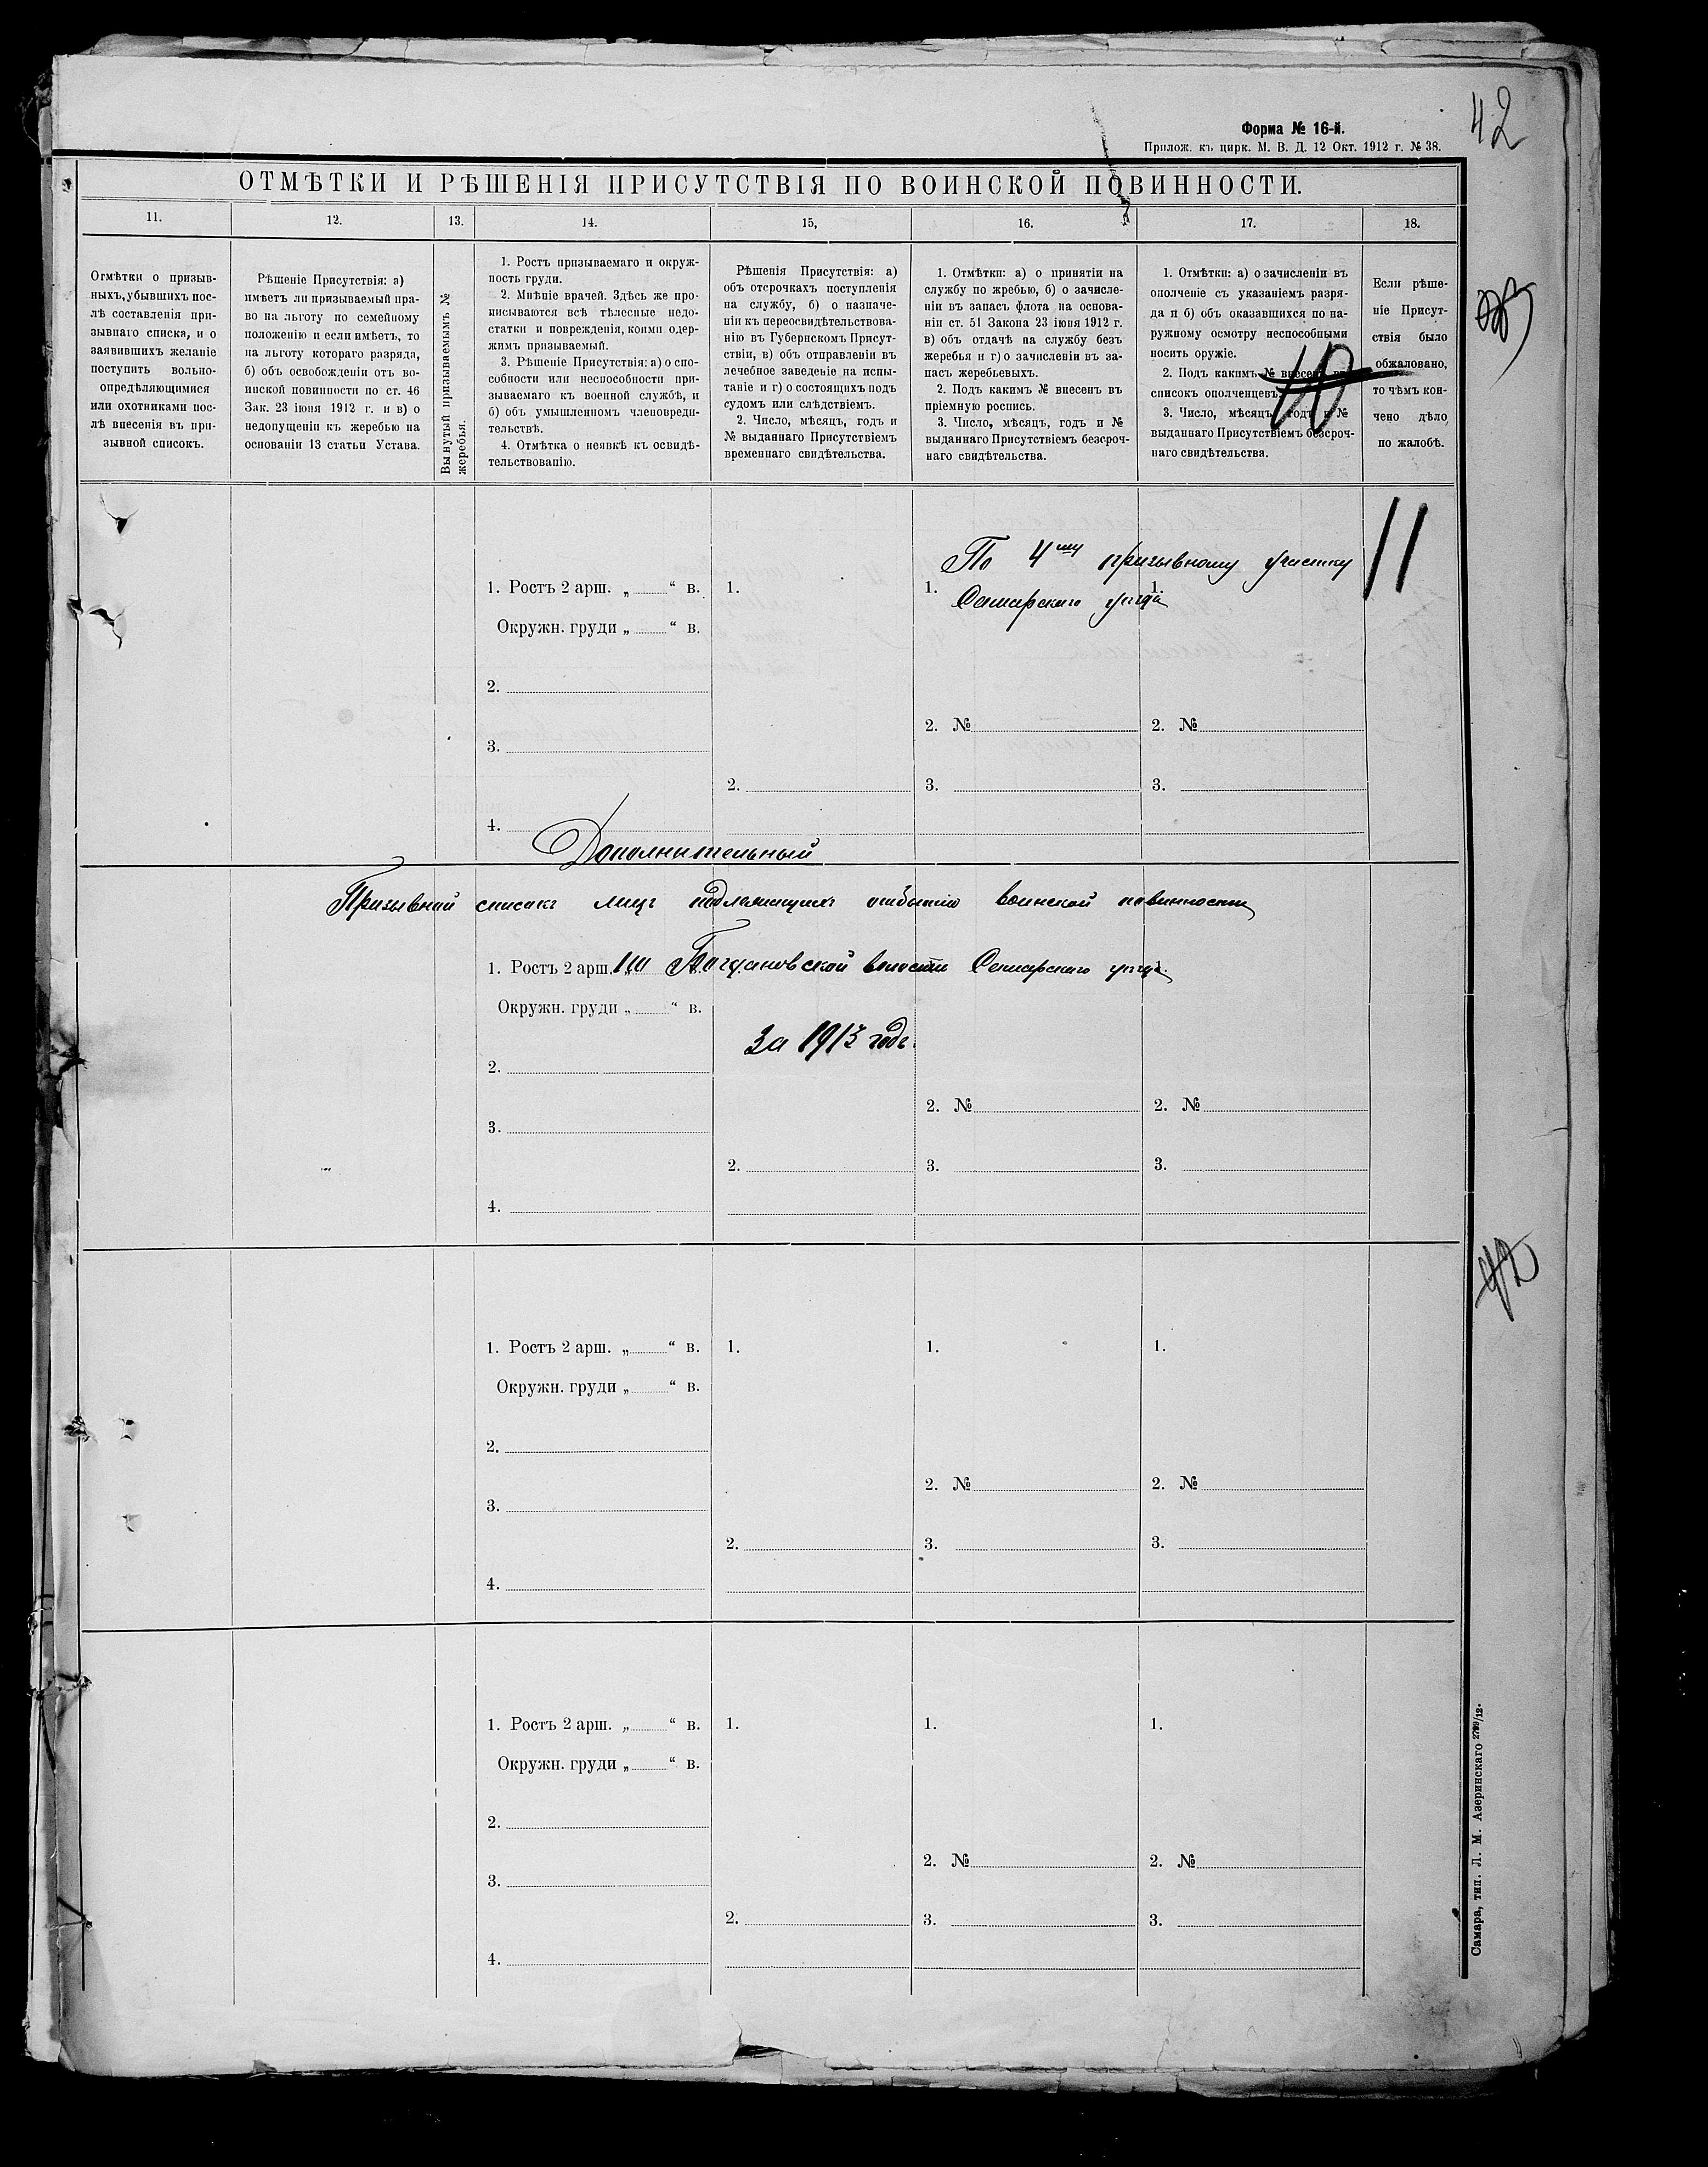 42
Форма № 16-й.
Прилож. къ цирк. М. В. Д. 12 Окт. 1912 г. № 38.
ОТМѢТКИ И РѢШЕНІЯ ПРИСУТСТВІЯ ПО ВОИНСКОЙ ПОВИННОСТИ.
11.
12.
13.
14.
15,
16.
17.
18.
Отмѣтки о призыв-
ныхъ, убывшихъ пос-
лѣ составленія при-
зывнаго списка, и о
заявившихъ желаніе
поступить вольно-
опредѣляющимися
или охотниками пос-
лѣ внесенія въ при-
зывной списокъ.
Рѣшеніе Присутствія: а)
имѣетъ ли призываемый пра-
во на льготу по семейному
положенію и если имѣетъ, то
на льготу котораго разряда,
б) объ освобожденіи отъ во-
инской повинности по ст. 46
Зак. 23 іюня 1912 г. и в) о
недопущеніи къ жеребью на
основаніи 13 статьи Устава.
Вынутый призываемымъ №
жеребья.
1. Ростъ призываемаго и окруж-
ность груди.
2. Мнѣніе врачей. Здѣсь же про-
писываются всѣ тѣлесные недо-
статки и поврежденія, коими одер-
жимъ призываемый.
3. Рѣшеніе Присутствія: а) о спо-
собности или неспособности при-
зываемаго къ военной службѣ, и
б) объ умышленномъ членовреди-
тельствѣ.
4. Отмѣтка о неявкѣ къ освидѣ-
тельствованію.
Рѣшенія Присутствія: а)
объ отсрочкахъ поступленія
на службу, б) о назначе-
ніи къ переосвидѣтельствова-
нію въ Губернскомъ Присут-
ствіи, в) объ отправленіи въ
лечебное заведеніе на испы-
таніе и г) о состоящихъ подъ
судомъ или слѣдствіемъ.
2. Число, мѣсяцъ, годъ и
№ выданнаго Присутствіемъ
временнаго свидѣтельства.
1. Отмѣтки: а) о принятіи на
службу по жребью, б) о зачисле-
ніи въ запасъ флота на основа-
ніи ст. 51 Закона 23 іюня 1912 г.
в) объ отдачѣ на службу безъ
жеребья и г) о зачисленіи въ за-
пасъ жеребьевыхъ.
2. Подъ какимъ № внесенъ въ
пріемную роспись.
3. Число, мѣсяцъ, годъ и №
выданнаго Присутствіемъ безсроч-
наго свидѣтельства.
1. Отмѣтки: а) о зачисленіи въ
ополченіе съ указаніемъ разря-
да и б) объ оказавшихся по на-
ружному осмотру неспособными
носить оружіе.
2. Подъ какимъ № внесенъ въ
списокъ ополченцевъ.
3. Число, мѣсяцъ, годъ и №
выданнаго Присутствіемъ безсроч-
наго свидѣтельства.
Если рѣше-
ніе Присут-
ствія было
обжаловано,
то чѣмъ кон-
чено дѣло
по жалобѣ.
По 4му призывному участку 11
1. Ростъ 2 арш. „ “ в. 1. 1. 1.
Самарскаго уѣзда
Окружн. груди „ “ в.
2.
2. № 2. №
3.
2. 3. 3.
4.
Дополнительный
Призывной списокъ лицъ подлежащихъ отбытію воинской повинности
1. Ростъ 2 арш. по Богдановской волости Самарскаго уѣзда
Окружн. груди „ “ в.
за 1913 годъ.
2.
2. № 2. №
3.
2. 3. 3.
4.
42
1. Ростъ 2 арш. „ “ в. 1. 1. 1.
Окружн. груди „ “ в.
2.
2. № 2. №
3.
2. 3. 3.
4.
1. Ростъ 2 арш. „ “ в. 1. 1. 1.
Окружн. груди „ “ в.
2.
2. № 2. №
3.
2. 3. 3.
4.
Самара, тип. Л. М. Азеринскаго 2799/12.